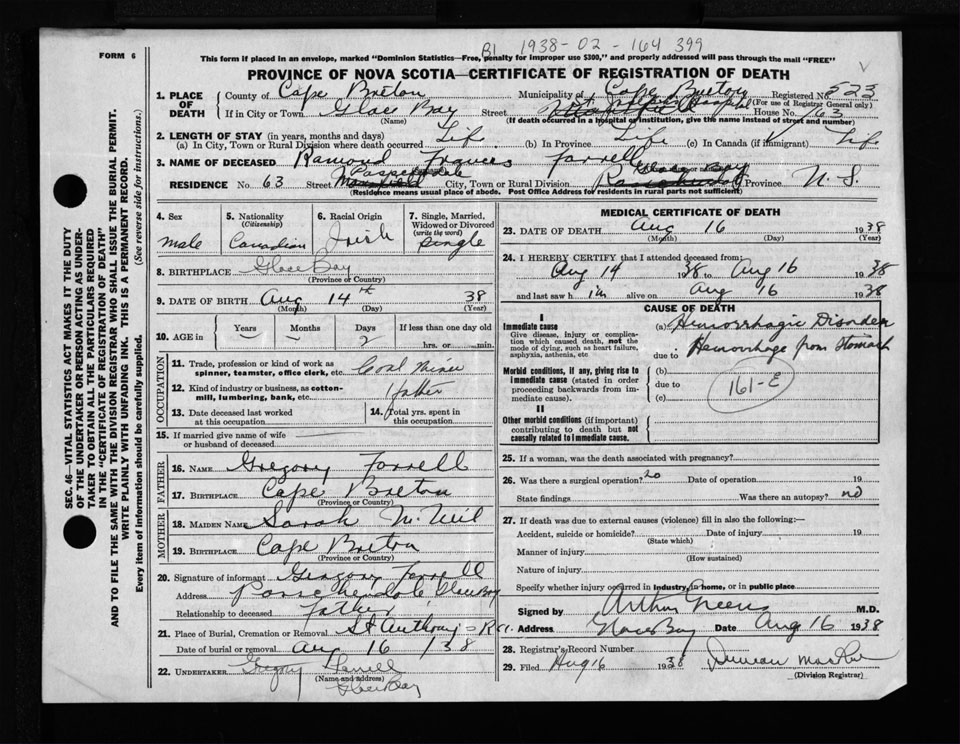 B1 1938-02-164 399
FORM 6
This form if placed in an envelope, marked "Dominion Statistics—Free, penalty for improper use $300," and properly addressed will pass through the mail "FREE"
PROVINCE OF NOVA SCOTIA—CERTIFICATE OF REGISTRATION OF DEATH
1. PLACE OF DEATH
County of Cape Breton Municipality of Cape Breton Registered No. 523
If in City or Town Glace Bay Street St Joseph Hospital House No. 163
(For use of Registrar General only)
(Name) (If death occurred in a hospital or institution, give the name instead of street and number)
2. LENGTH OF STAY (in years, months and days)
(a) In City, Town or Rural Division where death occurred Life (b) In Province Life (c) In Canada (if immigrant) Life
3. NAME OF DECEASED Ramond Frances Farrell
RESIDENCE No. 63 Street Passchendale City, Town or Rural Division Glace Bay Province N. S.
(Residence means usual place of abode. Post Office Address for residents in rural parts not sufficient)
4. Sex male
5. Nationality (Citizenship) Canadian
6. Racial Origin Irish
7. Single, Married, Widowed or Divorced (write the word) Single
8. BIRTHPLACE Glace Bay
(Province or Country)
9. DATE OF BIRTH Aug 14th 38
(Month) (Day) (Year)
10. AGE in Years — Months — Days 2 If less than one day old hrs. or min.
OCCUPATION
11. Trade, profession or kind of work as spinner, teamster, office clerk, etc. Coal Miner
12. Kind of industry or business, as cotton-mill, lumbering, bank, etc. father
13. Date deceased last worked at this occupation
14. Total yrs. spent in this occupation
15. If married give name of wife or husband of deceased
FATHER
16. NAME Gregory Farrell
17. BIRTHPLACE Cape Breton
(Province or Country)
MOTHER
18. MAIDEN NAME Sarah McNeil
19. BIRTHPLACE Cape Breton
(Province or Country)
20. Signature of informant Gregory Farrell
Address Passchendale Glace Bay
Relationship to deceased father
21. Place of Burial, Cremation or Removal St Anthony's R.C.
Date of burial or removal Aug 16 / 38
22. UNDERTAKER Gregory Farrell
(Name and address)
Glace Bay
MEDICAL CERTIFICATE OF DEATH
23. DATE OF DEATH Aug 16 1938
(Month) (Day) (Year)
24. I HEREBY CERTIFY that I attended deceased from:
Aug 14 1938 to Aug 16 1938
and last saw h im alive on Aug 16 1938
CAUSE OF DEATH
I
Immediate cause
Give disease, injury or complication which caused death, not the mode of dying, such as heart failure, asphyxia, asthenia, etc
(a) Hemorrhagic Disorder
due to Hemorrhage from Stomach
Morbid conditions, if any, giving rise to immediate cause (stated in order proceeding backwards from immediate cause).
(b)
due to
(c)
161-E
II
Other morbid conditions (if important) contributing to death but not causally related to immediate cause.
25. If a woman, was the death associated with pregnancy?
26. Was there a surgical operation? no Date of operation 19
State findings Was there an autopsy? no
27. If death was due to external causes (violence) fill in also the following:—
Accident, suicide or homicide? Date of injury 19
(State which)
Manner of injury
(How sustained)
Nature of injury
Specify whether injury occurred in industry, in home, or in public place
Signed by Arthur Green M.D.
Address Glace Bay Date Aug 16 1938
28. Registrar's Record Number
29. Filed Aug 16 1938 Duncan
(Division Registrar)
SEC. 46—VITAL STATISTICS ACT MAKES IT THE DUTY
OF THE UNDERTAKER OR PERSON ACTING AS UNDER-
TAKER TO OBTAIN ALL THE PARTICULARS REQUIRED
IN THE "CERTIFICATE OF REGISTRATION OF DEATH"
AND TO FILE THE SAME WITH THE DIVISION REGISTRAR WHO SHALL ISSUE THE BURIAL PERMIT.
WRITE PLAINLY WITH UNFADING INK. THIS IS A PERMANENT RECORD.
Every item of information should be carefully supplied. (See reverse side for instructions.)